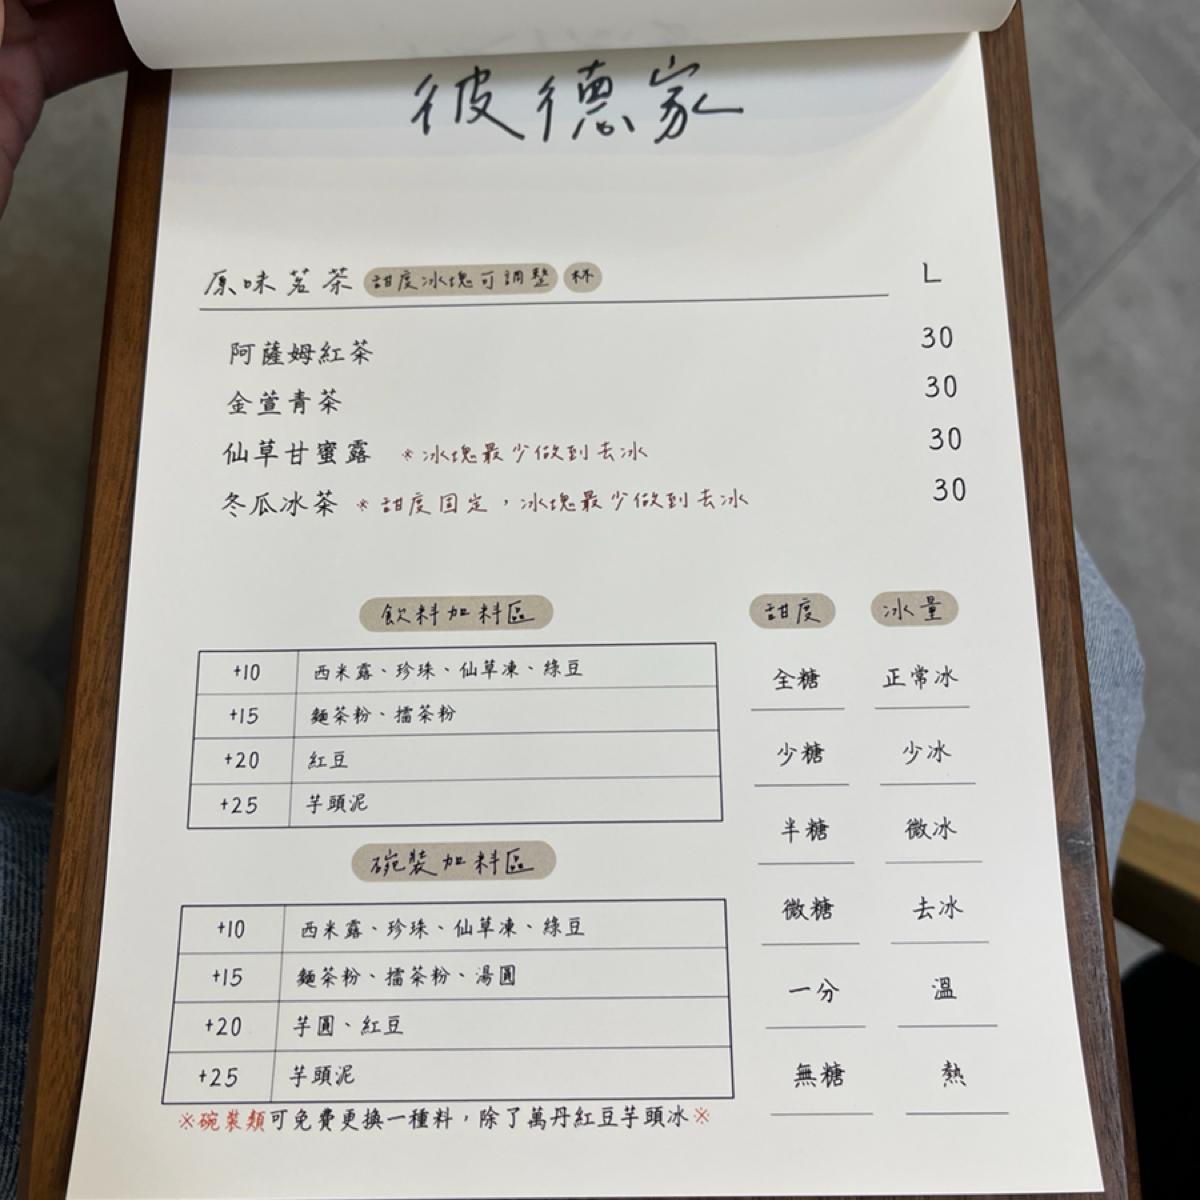 彼得家
原味茗茶 甜度冰塊可調整 杯 L
阿薩姆紅茶 30
金萱青茶 30
仙草甘蜜露 ※冰塊最少做到去冰 30
冬瓜冰茶 ※甜度固定，冰塊最少做到去冰 30
飲料加料區
+10 西米露、珍珠、仙草凍、綠豆
+15 麵茶粉、擂茶粉
+20 紅豆
+25 芋頭泥
碗裝加料區
+10 西米露、珍珠、仙草凍、綠豆
+15 麵茶粉、擂茶粉、湯圓
+20 芋圓、紅豆
+25 芋頭泥
※碗裝類可免費更換一種料，除了萬丹紅豆芋頭冰※
甜度 冰量
全糖 正常冰
少糖 少冰
半糖 微冰
微糖 去冰
一分 溫
無糖 熱